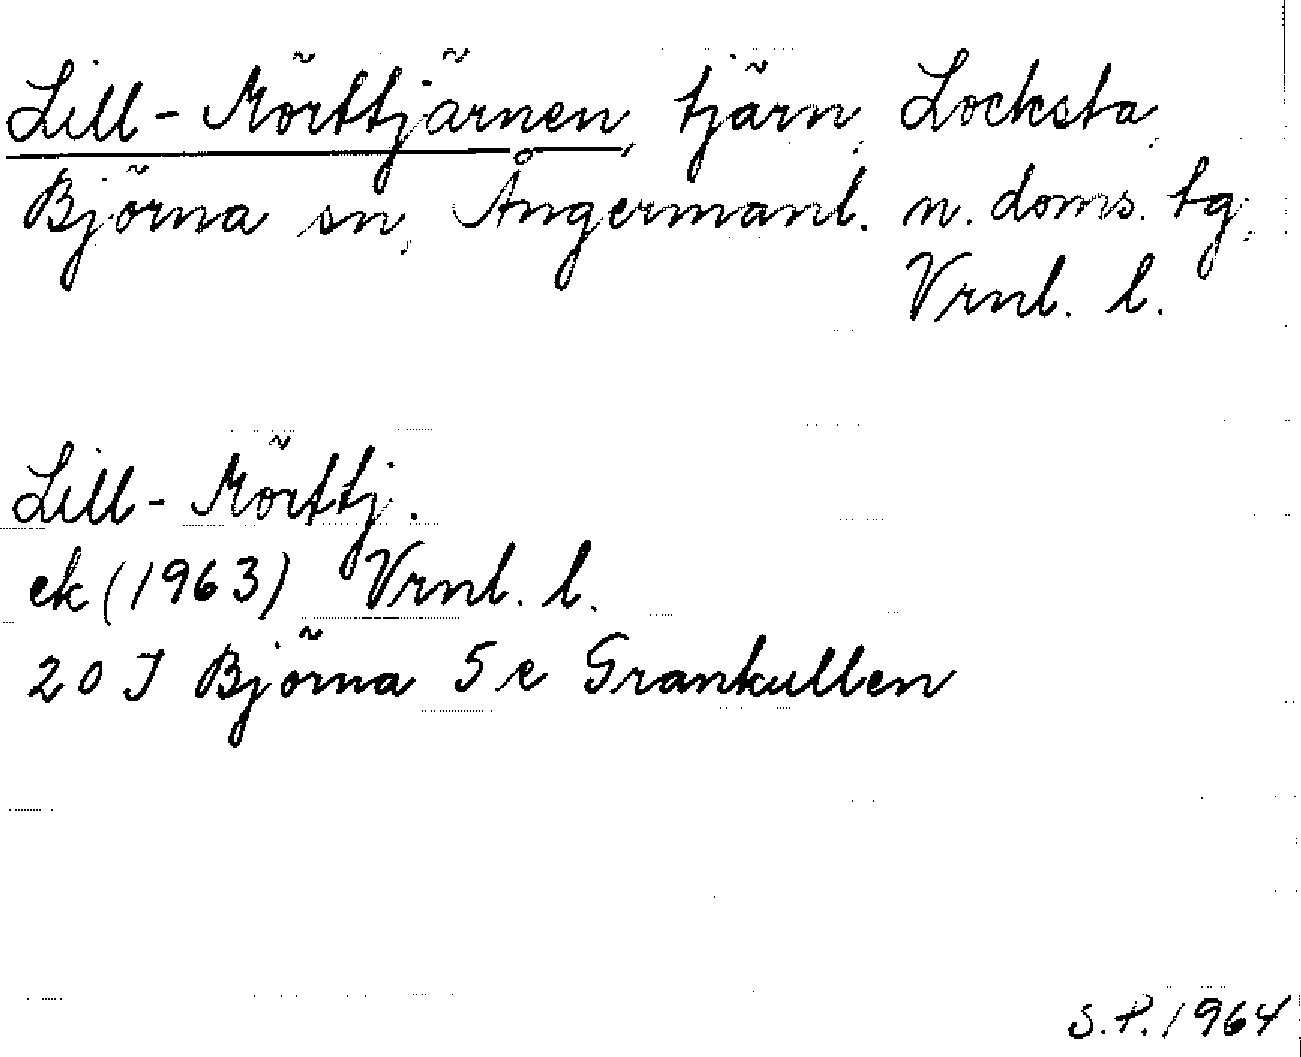 Lill-Mörttjärnen, tjärn, Locksta,
Björna sn, Ångermanl. n. doms. tg,
Vrnl. l.
Lill-Mörttj.
ek (1963) Vrnl. l.
20 J Björna 5 e Grankullen
S.P. 1964